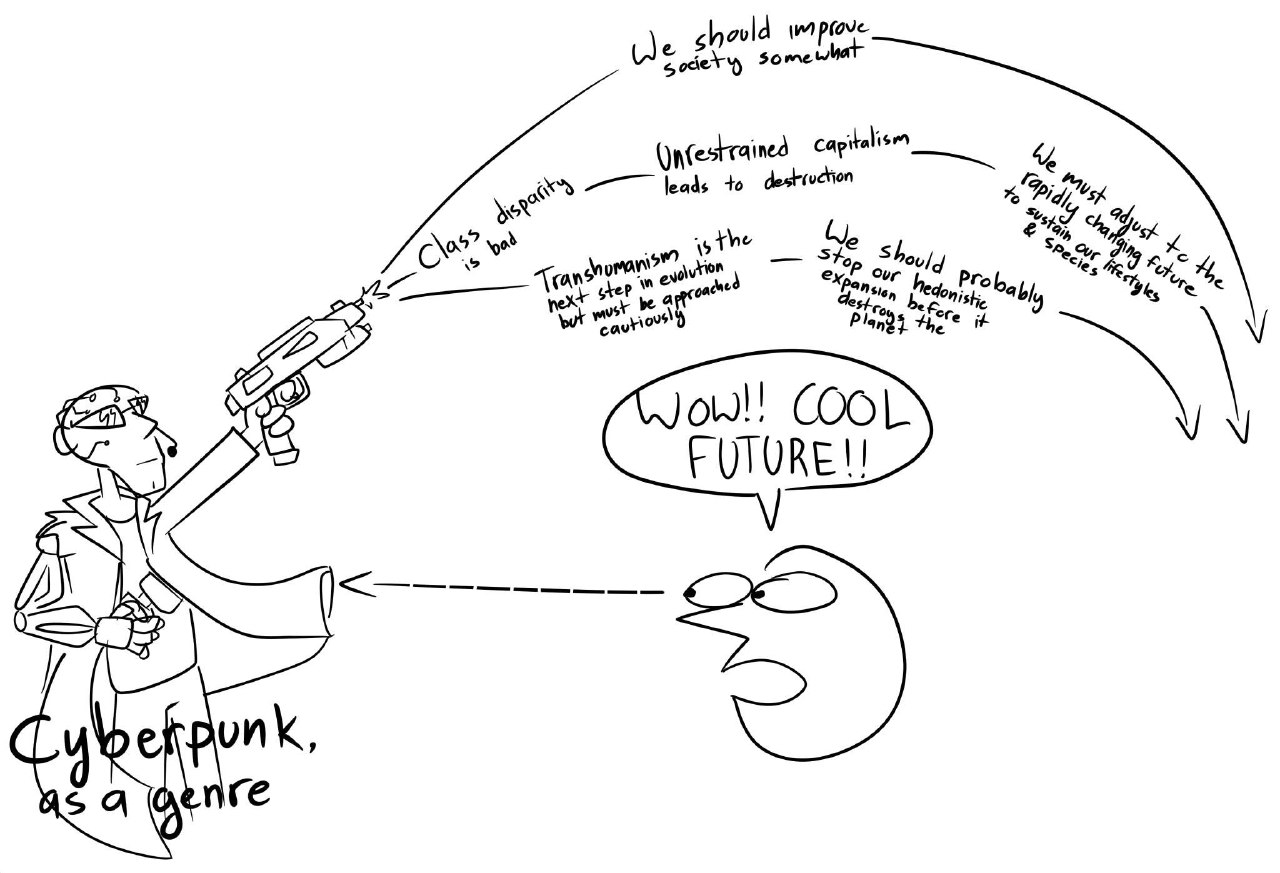 We should improve
society somewhat
Class disparity
is bad
Unrestrained capitalism
leads to destruction
We must adjust to the
rapidly changing future
to sustain our lifestyles
& species
Transhumanism is the
next step in evolution
but must be approached
cautiously
We should probably
stop our hedonistic
expansion before it
destroys the
planet
WOW!! COOL
FUTURE!!
Cyberpunk,
as a genre